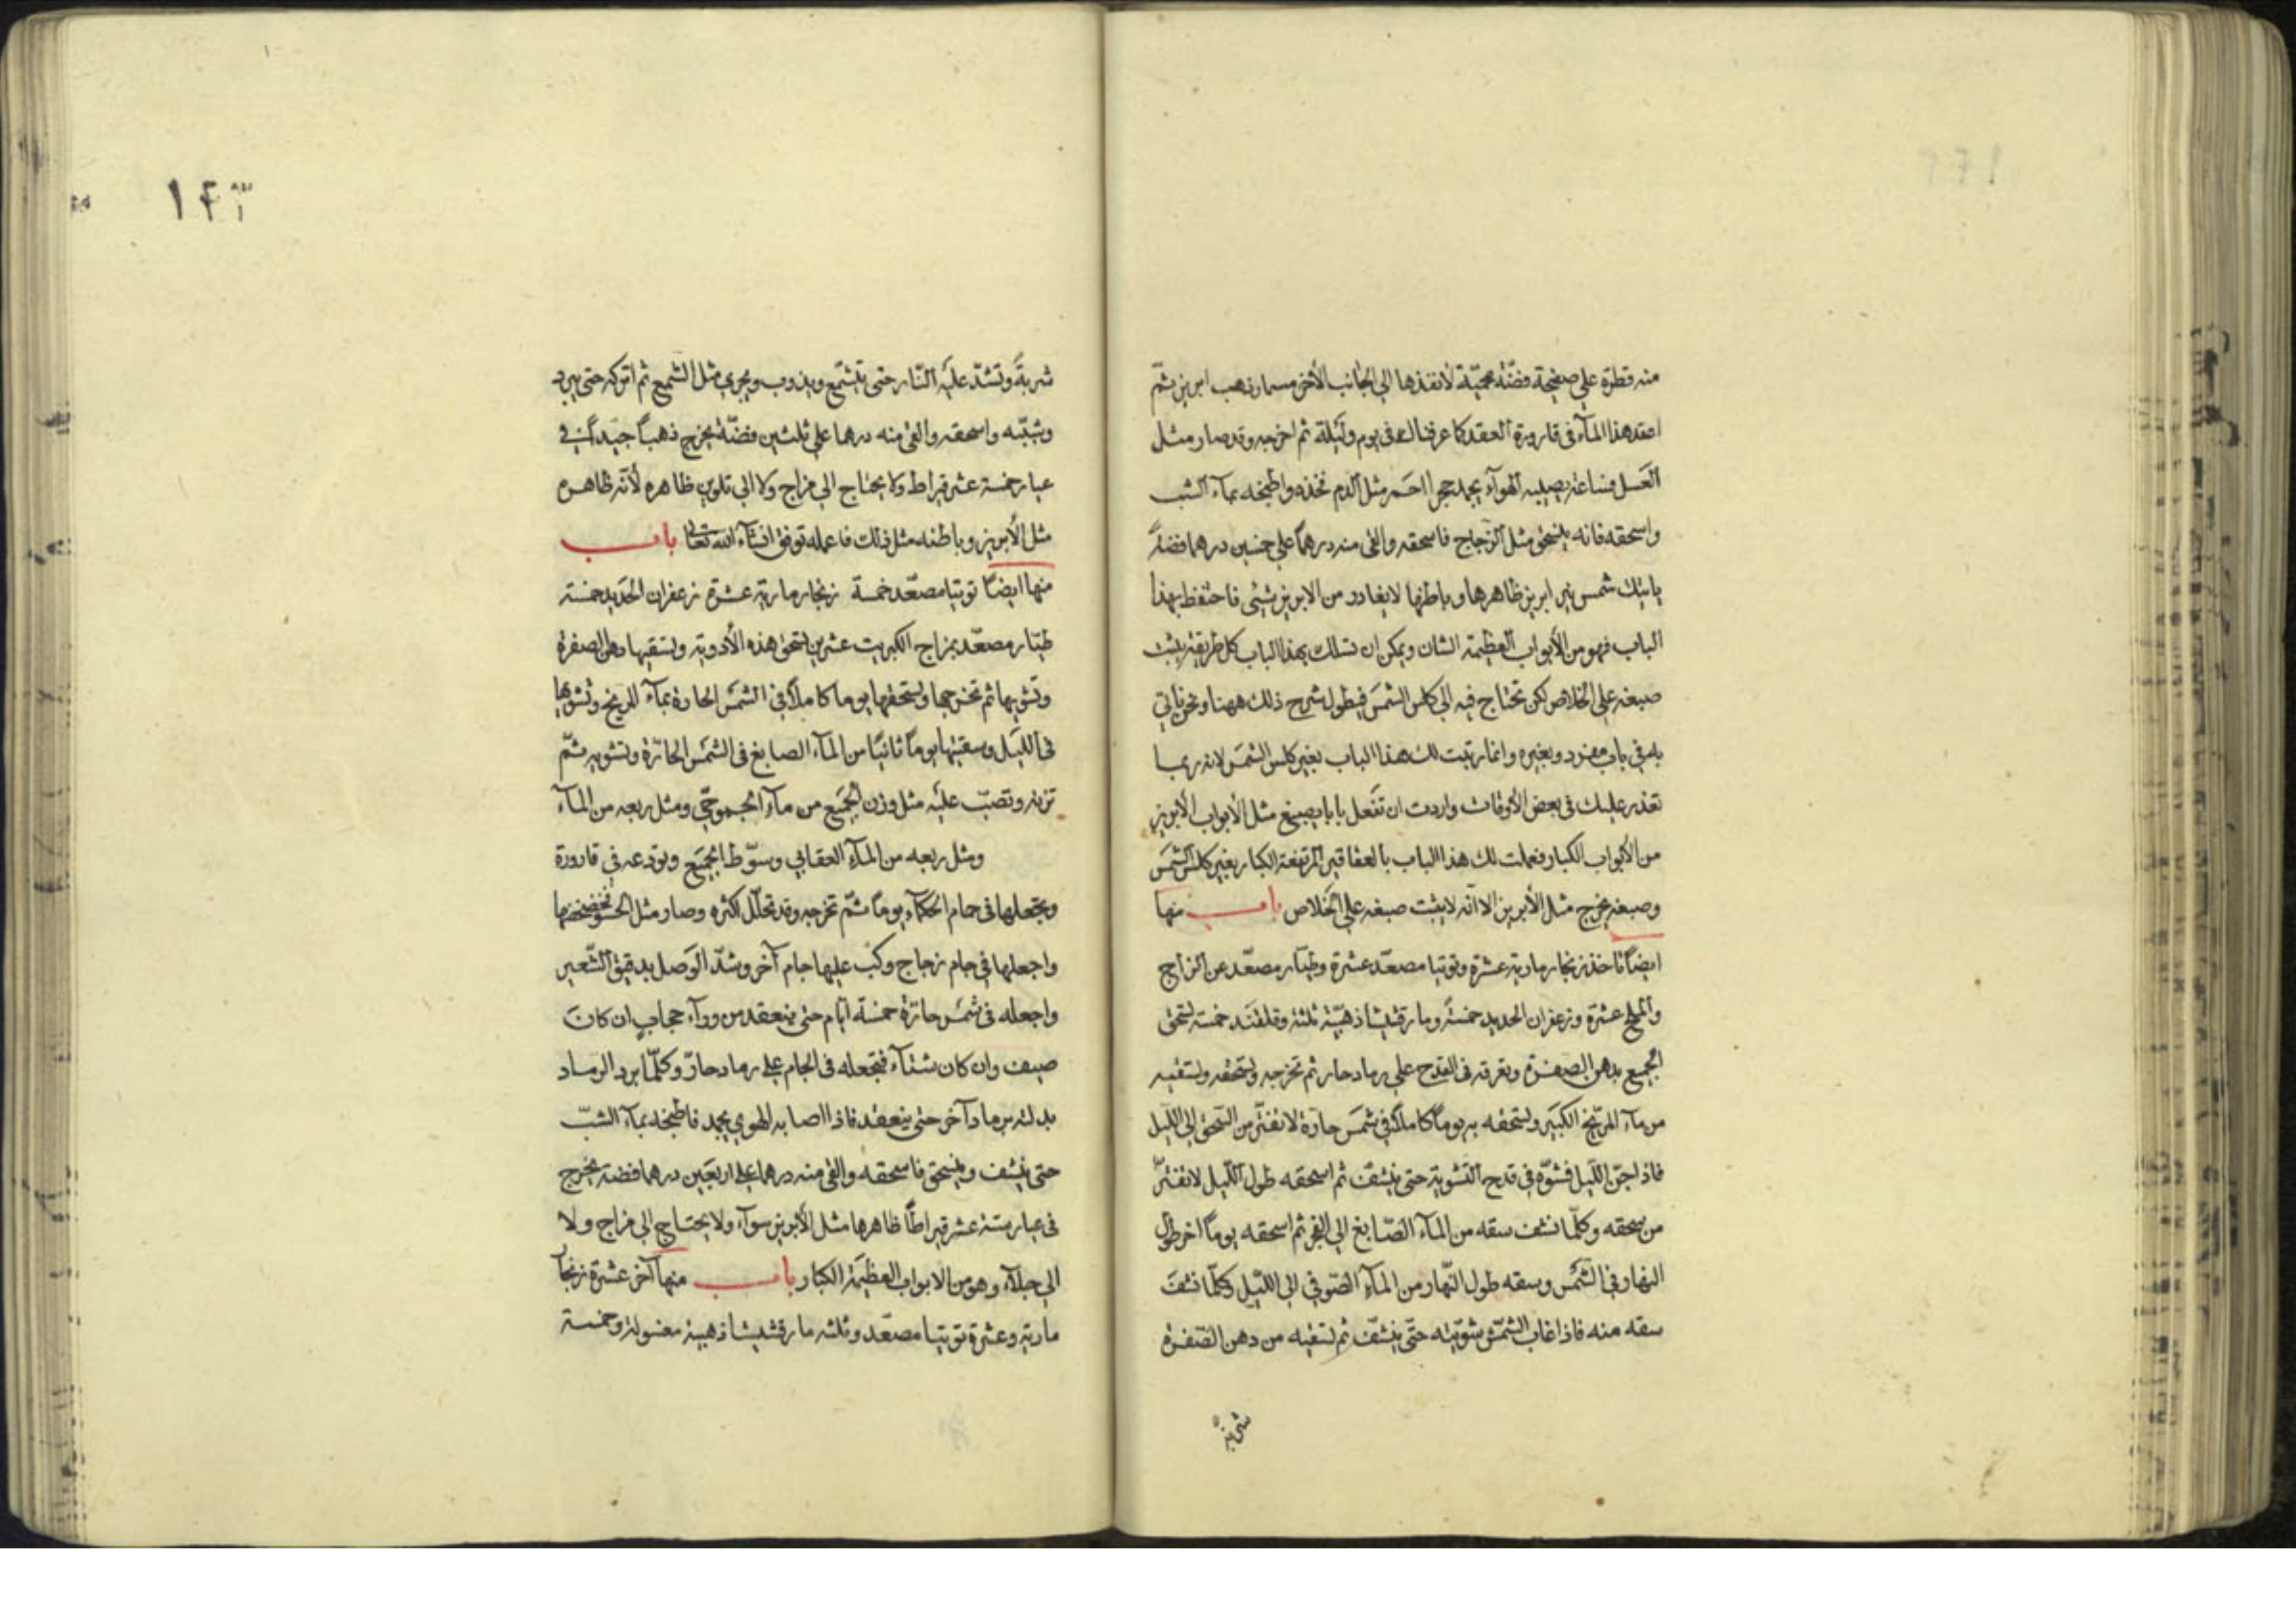 منه قطرة على صفيحة فضة محميّة لأنفذها الى الجانب الأخر مسمار ذهب ابريز ثمّ
اعقد هذا المآء فى قارورة العقد كما عرفناك فى يوم وليلة ثم اخرجه وقد صار مثل
العسل فساعة يصيبه الهوآء يجمد حجرا احمر مثل الدم فخذه واطبخه بمآء الشب
واسحقه فانه ينسحق مثل الزجاج فاسحقه والق منه درهماً على خمسين درهما فضّة
يأتيك شمس نير ابريز ظاهرها وباطنها لا يغادر من الابريز شيئى فاحتفظ بهذا
الباب فهو من الأبواب العظيمة الشان ويمكن ان تسلك بهذا الباب كل طريقة يثبت
صبغه على الخلاص لكن تحتاج فيه الى كلس الشمس فيطول شرح ذلك ههنا ونحن نأتي
به في باب مفرد وبغيره وانما رتبت لك هذا الباب بغير كلس الشمس لانه ربما
تعذر عليك فى بعض الأوقات واردت ان تفعل بابا يصبغ مثل الأبواب الأبريز
من الأبواب الكبار فعملت لك هذا الباب بالعقاقير المرتفعة الكبار بغير كلس الشمس
وصبغه يخرج مثل الأبريز الا انّه لا يثبت صبغه على الخلاص باب منها
ايضاً تاخذ زنجار مارية عشرة وتوتيا مصعّد عشرة وطيّار مصعّد عن الزاج
والملح عشرة وزعفران الحديد خمسة ومارقشيشا ذهبيّة ثلثة وقلقند خمسة تسحق
الجميع بدهن الصفرة وتغرقه فى القدح على رماد حار ثم تخرجه وتسحقه وتسقيه
من مآء المرّيخ الكبير وتسحقه به يوماً كاملاً فى شمس حارّة لا تفتّر من السحق الى الليل
فاذا جنّ اللّيل فشوّه في قدح التشوية حتى ينشف ثم اسحقه طول اللّيل لا تفترّ
من سحقه وكلّما نشف سقه من المآء الصّابغ الى الفجر ثم اسحقه يوماً اخر طول
النهار في الشّمس وسقه طول النّهار من المآء الصّوفي الى اللّيل وكلّما نشف
سقه منه فاذا غاب الشمس شوّيته حتّى ينشف ثم تسقيه من دهن الصّفرة
شربة
١٤٣
شربةً وتشدّ عليه النّار حتى يتشمّع ويذوب ويجري مثل الشّمع ثم اتركه حتى يبرد
وتثبّته واسحقه والق منه درهما على ثلثين فضّة يخرج ذهباً جيّداً فى
عيار خمسة عشر قيراط ولا يحتاج الى مزاج ولا الى تلوين ظاهره لأنّه ظاهره
مثل الأبريز وباطنه مثل ذلك فاعمله توفق انشآء اللّه تعالى باب
منها ايضاً توتيا مصعّد خمسة زنجار مارية عشرة زعفران الحديد خمسة
طيّار مصعّد بمزاج الكبريت عشرين تسحق هذه الأدوية وتسقيها دهن الصفرة
وتشويها ثم تخرجها وتسحقها يوما كاملاً فى الشمس الحارة بمآء المريخ وتشويها
فى اللّيل وسقيتها يوماً ثانياً من المآء الصابغ فى الشمس الحارّة وتشويه ثمّ
تزنه وتصبّ عليه مثل وزن الجميع من مآء ومثل ربعه من المآء
ومثل ربعه من المآء العقابي وسوّط الجميع وتودعه في قارورة
وتجعلها فى حمام الحكمآء يوماً ثمّ تخرجه وقد تحلّل اكثره وصار مثل الحسو فخضخضها
واجعلها في جام زجاج وكبّ عليها جام آخر وشدّ الوصل بدقيق الشّعير
واجعله فى شمس حارّة خمسة ايّام حتى ينعقد من ورآء حجاب ان كان
صيف وان كان شتآء فتجعله فى الجام على رماد حارّ وكلّما برد الرماد
بدلته برماد آخر حتى ينعقد فاذا اصابه الهوى يجمد فاطبخه بمآء الشبّ
حتى ينشف وينسحق فاسحقه والق منه درهما على اربعين درهما فضة يخرج
فى عيار ستة عشر قيراطاً ظاهرها مثل الأبريز سوآء ولا يحتاج الى مزاج ولا
الى جلآء وهو من الابواب العظيمة الكبار باب منها آخر عشرة زنجار
مارية وعشرة توتيا مصعّد وثلثه مارقشيشا ذهبية مغسولة وخمسة